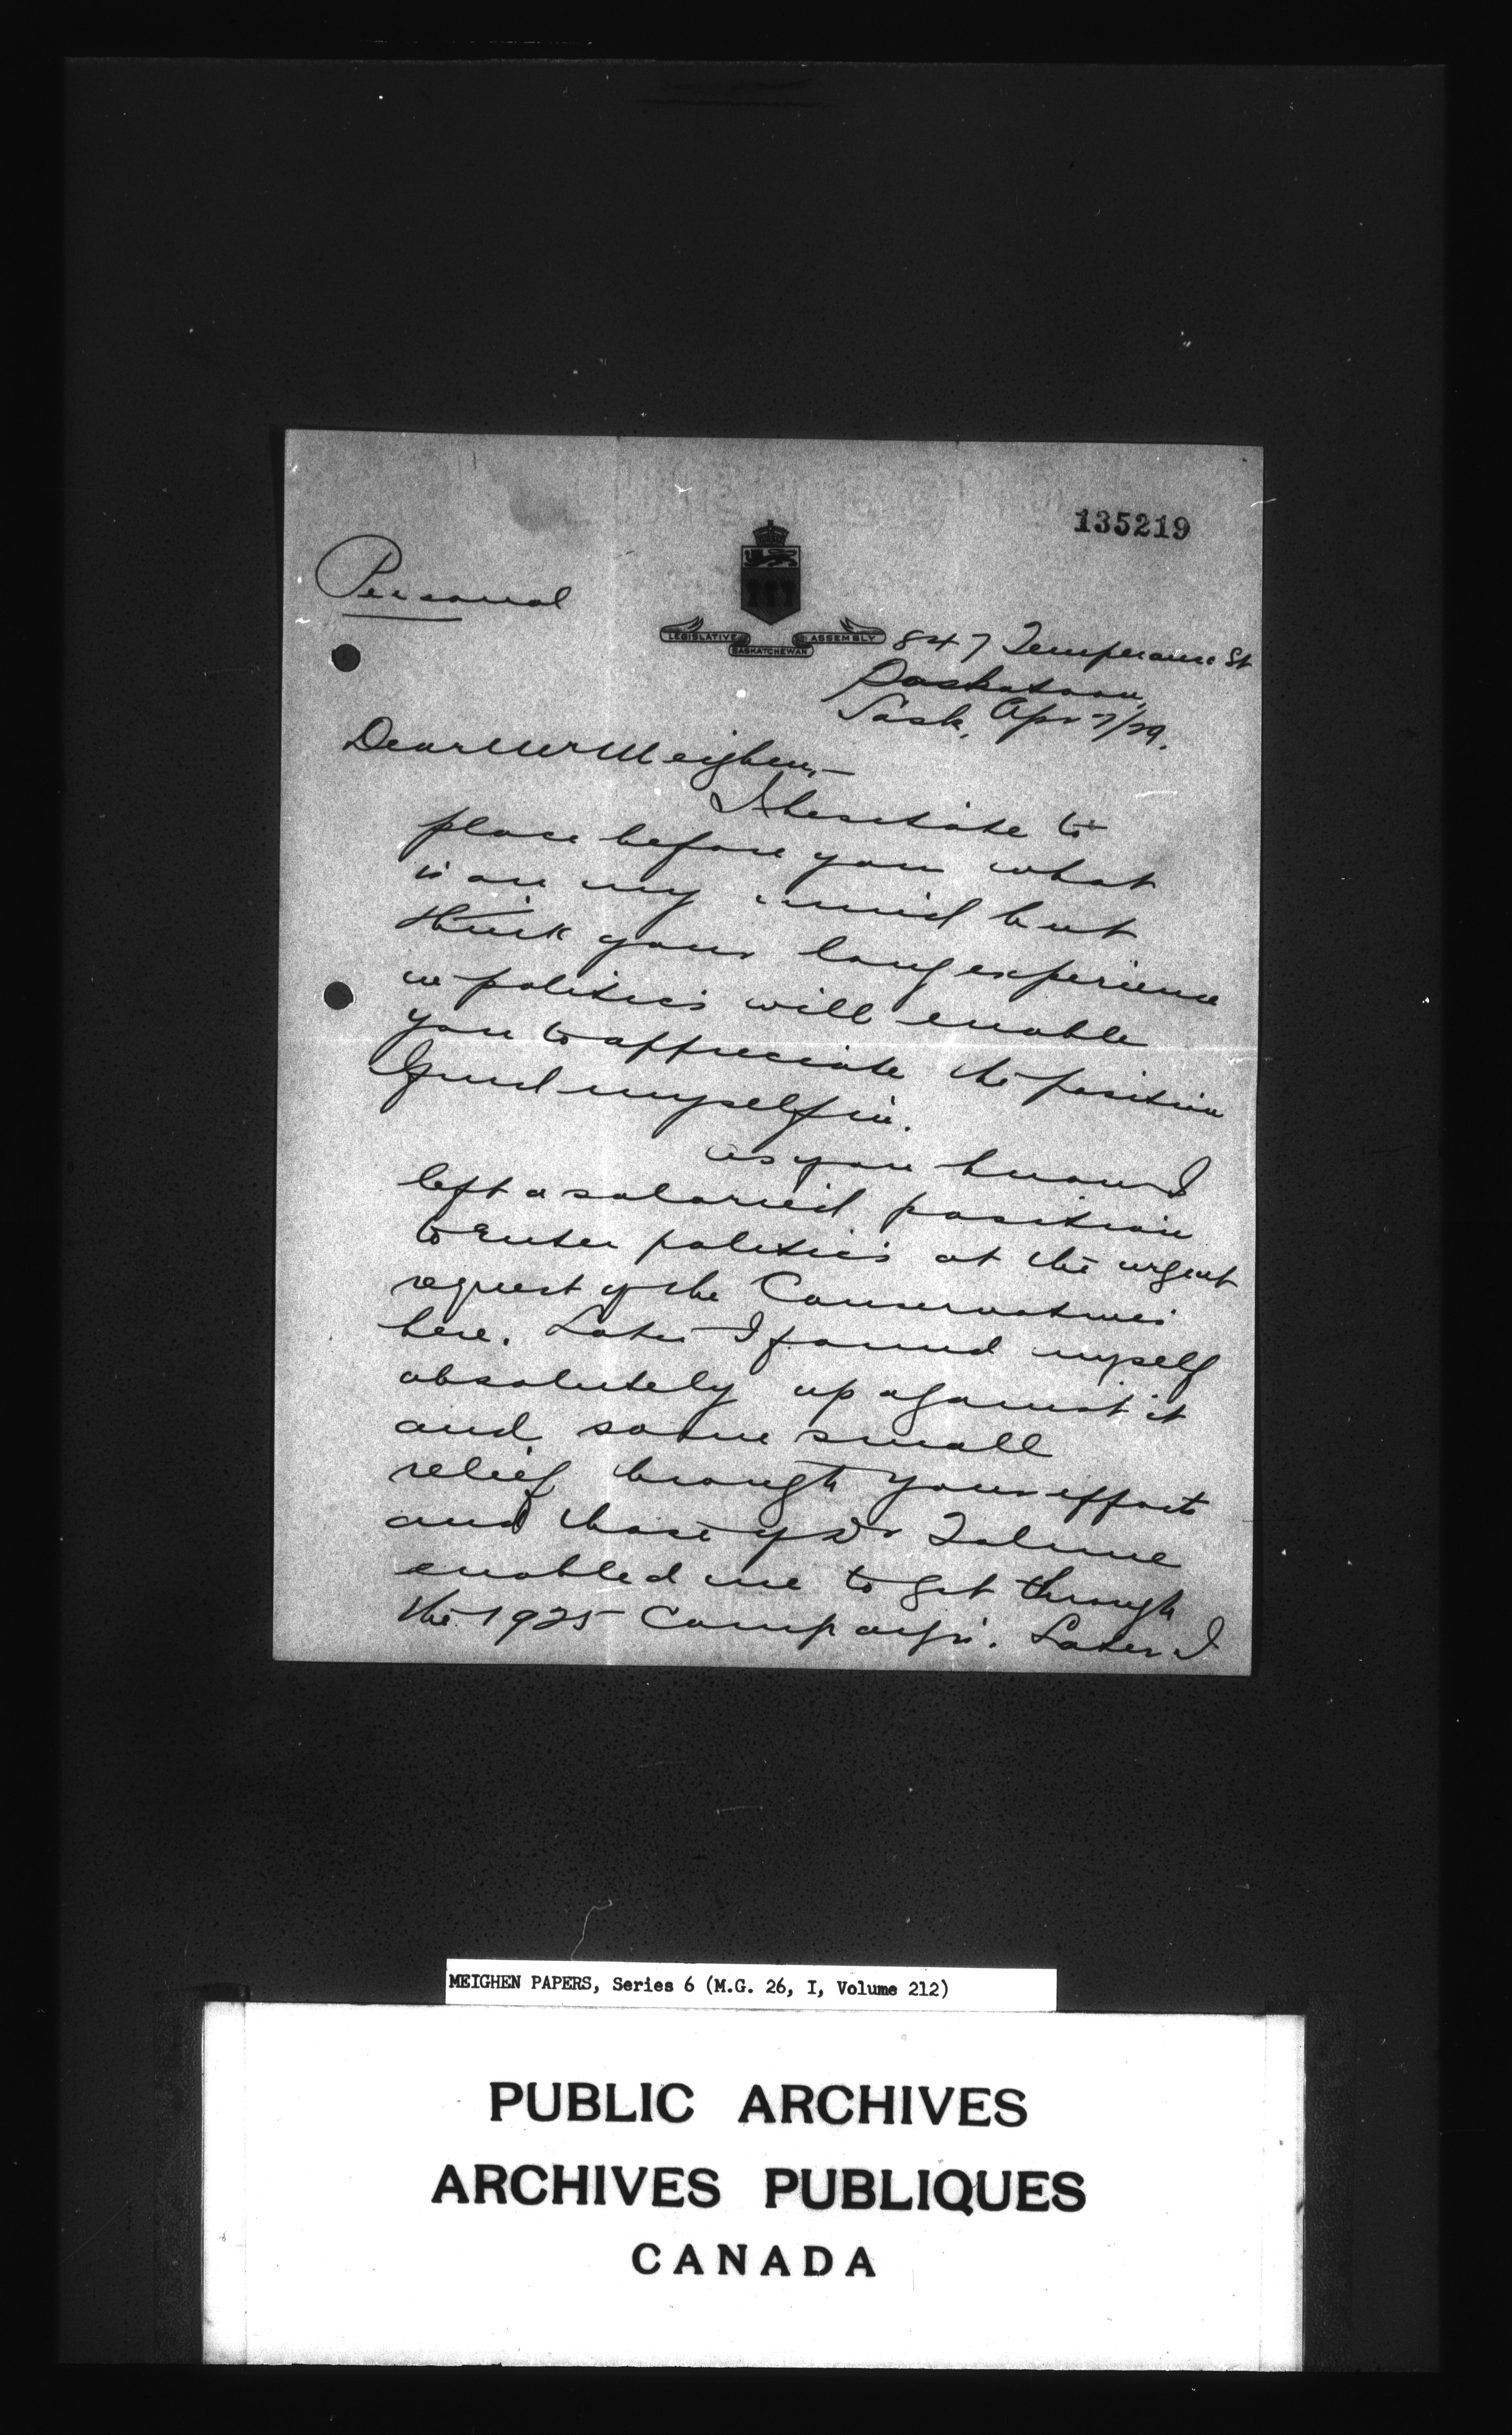 135219
Personal
LEGISLATIVE ASSEMBLY
SASKATCHEWAN
847 Temperance St
Saskatoon,
Sask, Apr 7/29.
Dear Mr Meighen,—
I hesitate to
place before you what
is on my mind but
think your long experience
in politics will enable
you to appreciate the position
I find myself in.
As you know I
left a salaried position
to enter politics at the urgent
request of the Conservatives
here. Later I found myself
absolutely up against it
and some small
relief through your efforts
and those of Dr Tolmie
enabled me to get through
the 1925 Campaign. Later I
MEIGHEN PAPERS, Series 6 (M.G. 26, I, Volume 212)
PUBLIC ARCHIVES
ARCHIVES PUBLIQUES
CANADA